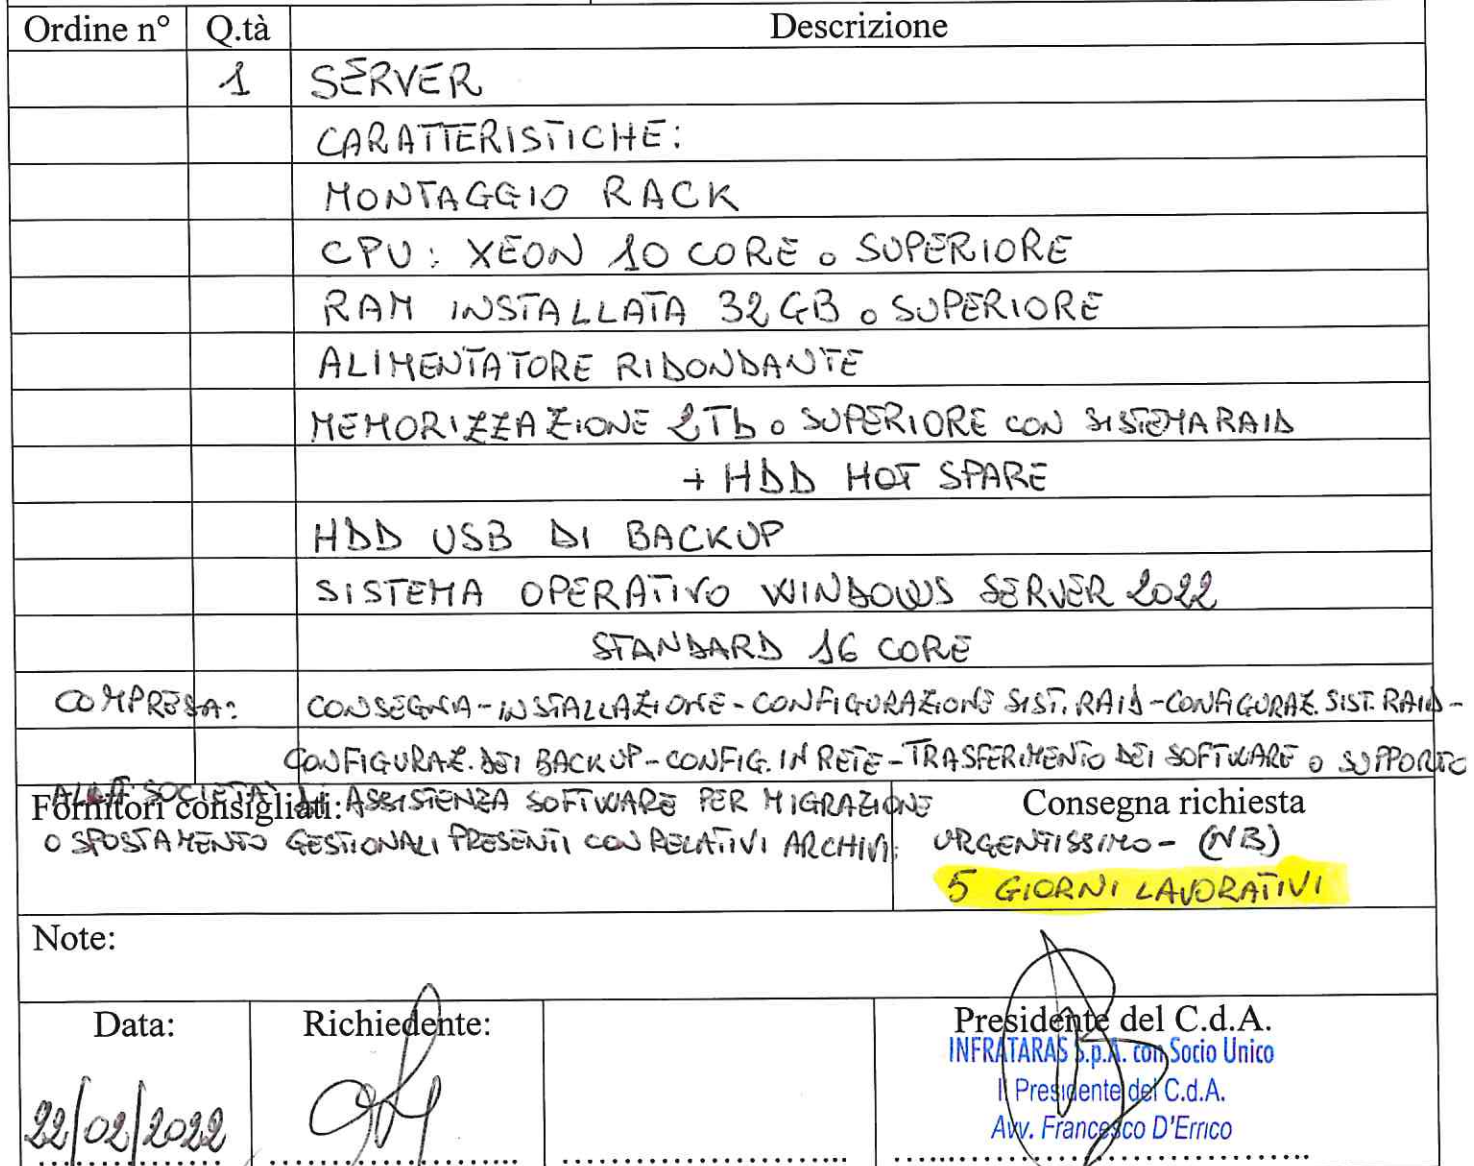 Ordine n° Q.tà Descrizione
1 SERVER
CARATTERISTICHE:
MONTAGGIO RACK
CPU: XEON 10 CORE o SUPERIORE
RAM INSTALLATA 32 GB o SUPERIORE
ALIMENTATORE RIDONDANTE
MEMORIZZAZIONE 2Tb o SUPERIORE CON SISTEMA RAID
+ HDD HOT SPARE
HDD USB DI BACKUP
SISTEMA OPERATIVO WINDOWS SERVER 2022
STANDARD 16 CORE
COMPRESA: CONSEGNA - INSTALLAZIONE - CONFIGURAZIONE SIST. RAID - CONFIGURAZ. SIST. RAID -
CONFIGURAZ. DEI BACKUP - CONFIG. IN RETE - TRASFERIMENTO DEI SOFTWARE o SUPPORTO
ALLA SOCIETÀ DI ASSISTENZA SOFTWARE PER MIGRAZIONE
Fornitori consigliati: Consegna richiesta
O SPOSTAMENTO GESTIONALI PRESENTI CON RELATIVI ARCHIVI. URGENTISSIMO - (NB)
5 GIORNI LAVORATIVI
Note:
Data: Richiedente: Presidente del C.d.A.
INFRATARAS S.p.A. con Socio Unico
Il Presidente del C.d.A.
Avv. Francesco D'Errico
22/02/2022